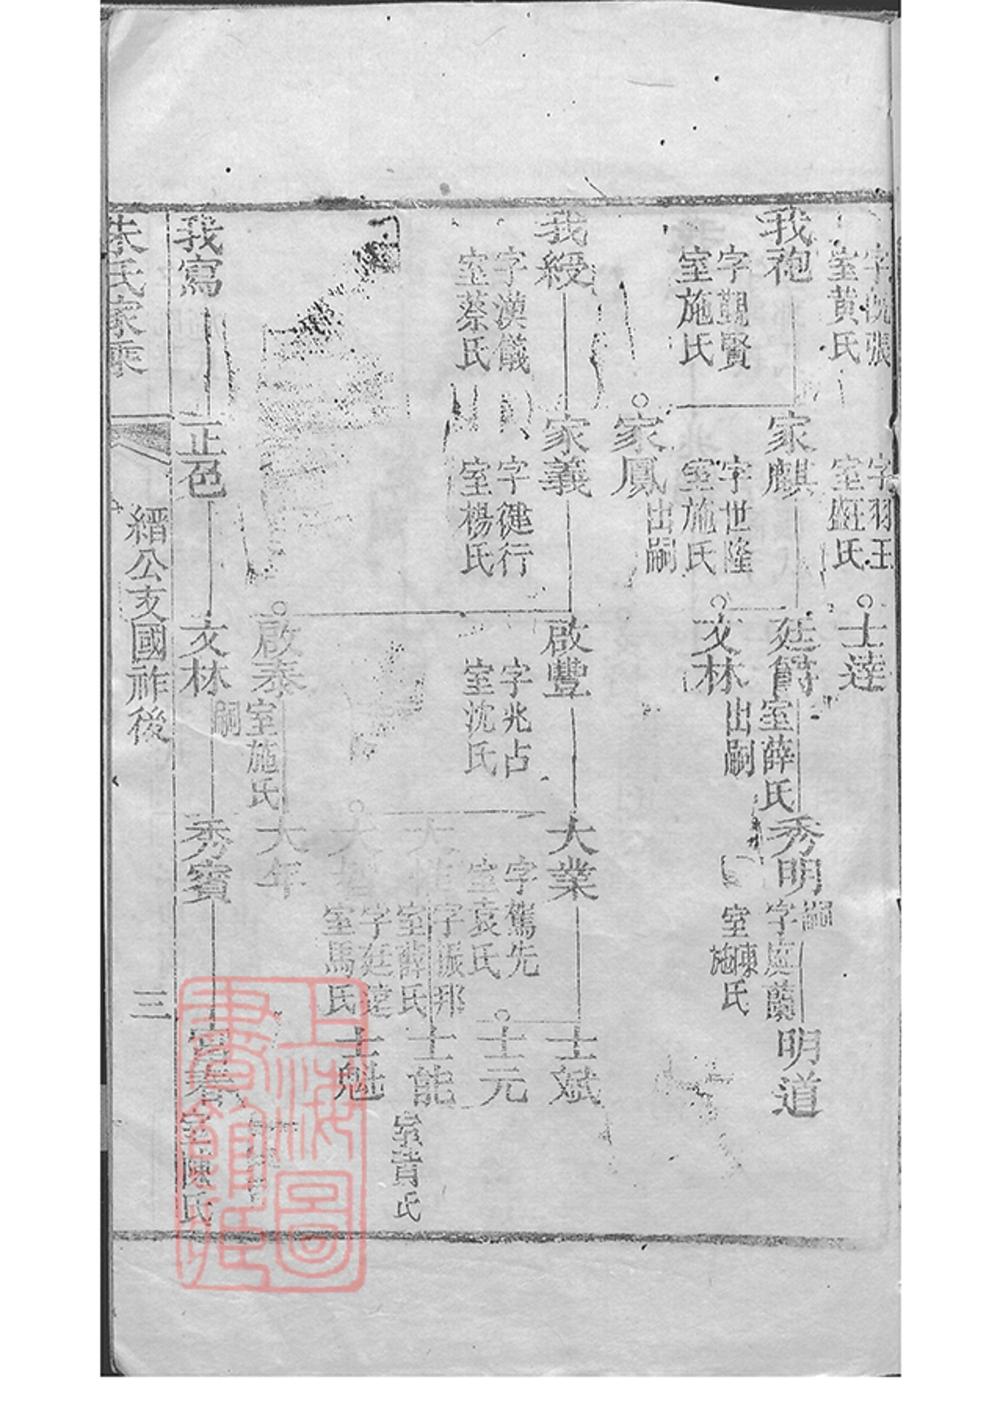 字
室黃氏
字羽王
室莊氏
士達
我袍
字觀賢
室施氏
家麒
字世隆
室施氏
廷爵
室薛氏
秀明
嗣
字庭蘭
室陳施氏
明道
文林
出嗣
家鳳
出嗣
我綬
字漢儀
室蔡氏
家義
字健行
室楊氏
啟豐
字兆占
室沈氏
大業
字駕先
室袁氏
士斌
士元
字振邦
室薛氏
士能
室黃氏
字廷建
室馬氏
士魁
啟泰
室施氏
嗣
大年
我寫
正色
文林
秀賓
富春
室陳氏
朱氏家乘
縉公支國祚後
三
上海圖書館藏